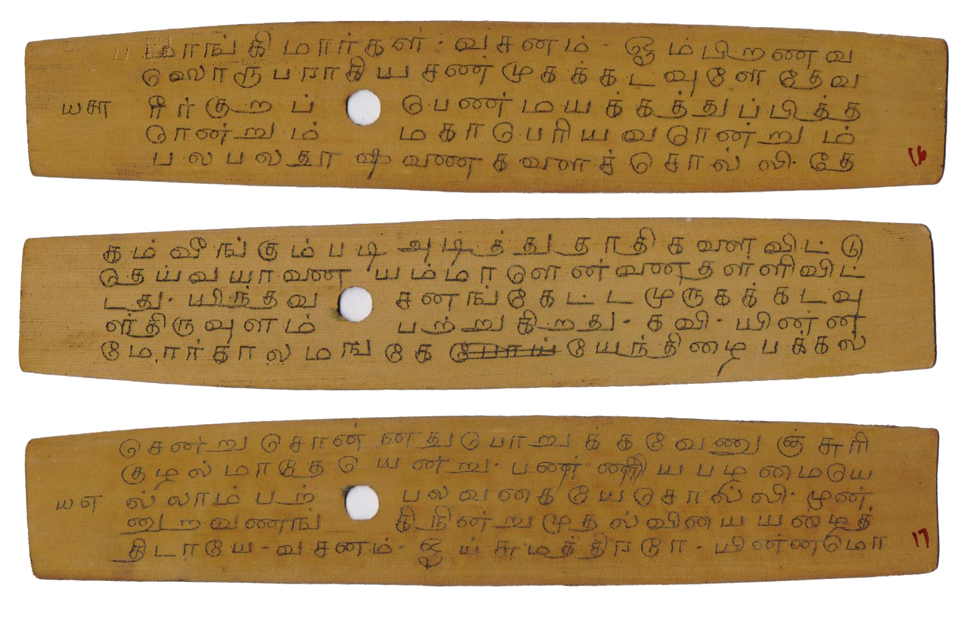 மாங்கிமார்கள் - வசனம் - ஓம்பிறணவ
சொருபமாகியசண்முகக்கடவுளே தேவ
யசு ரீர்குறப் பெண்மயக்கத்துப்பித்த
கொண்றும் மகாபெரியவனொன்றும்
பலபலதூஷ வணைகளைச் சொல்லி தே
கம்வீங்கும்படி அடித்து தாதிகளைவிட்டு
தெய்வயாணை யம்மாளென்னைதள்ளிவிட்
டது - யிந்தவ சனங்கேட்டமுருகக்கடவு
ள்திருவுளம் பற்றுகிறது - கவி - யின்ன
மோர்கால மங் கே யேந்திழைபக்கல்
சென்று சொன்னதுபொறுக்கவேணுஞ்சுரி
குழல்மாதே யென்று பண்ணியபழமையெ
யஎ ல்லாம்பற் பலவகையேசொல்லி முன்
னுறவணங் கிநின்றுமுதல்வியையழைத்
திடாயே - வசனம் - ஓய்சுமத்திரரே - யின்னமொ
16
17